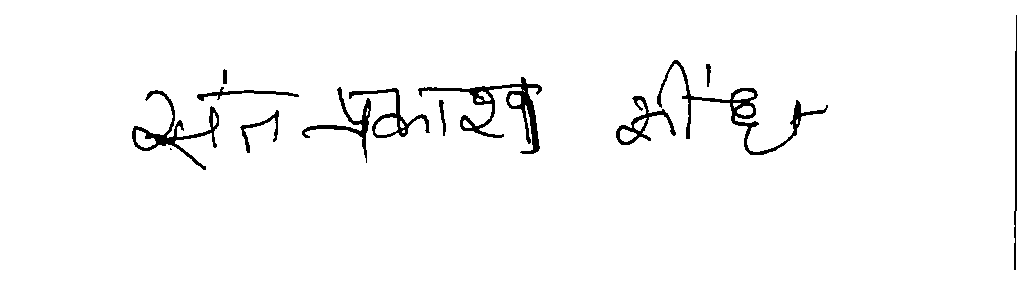 संत प्रकाश सींह